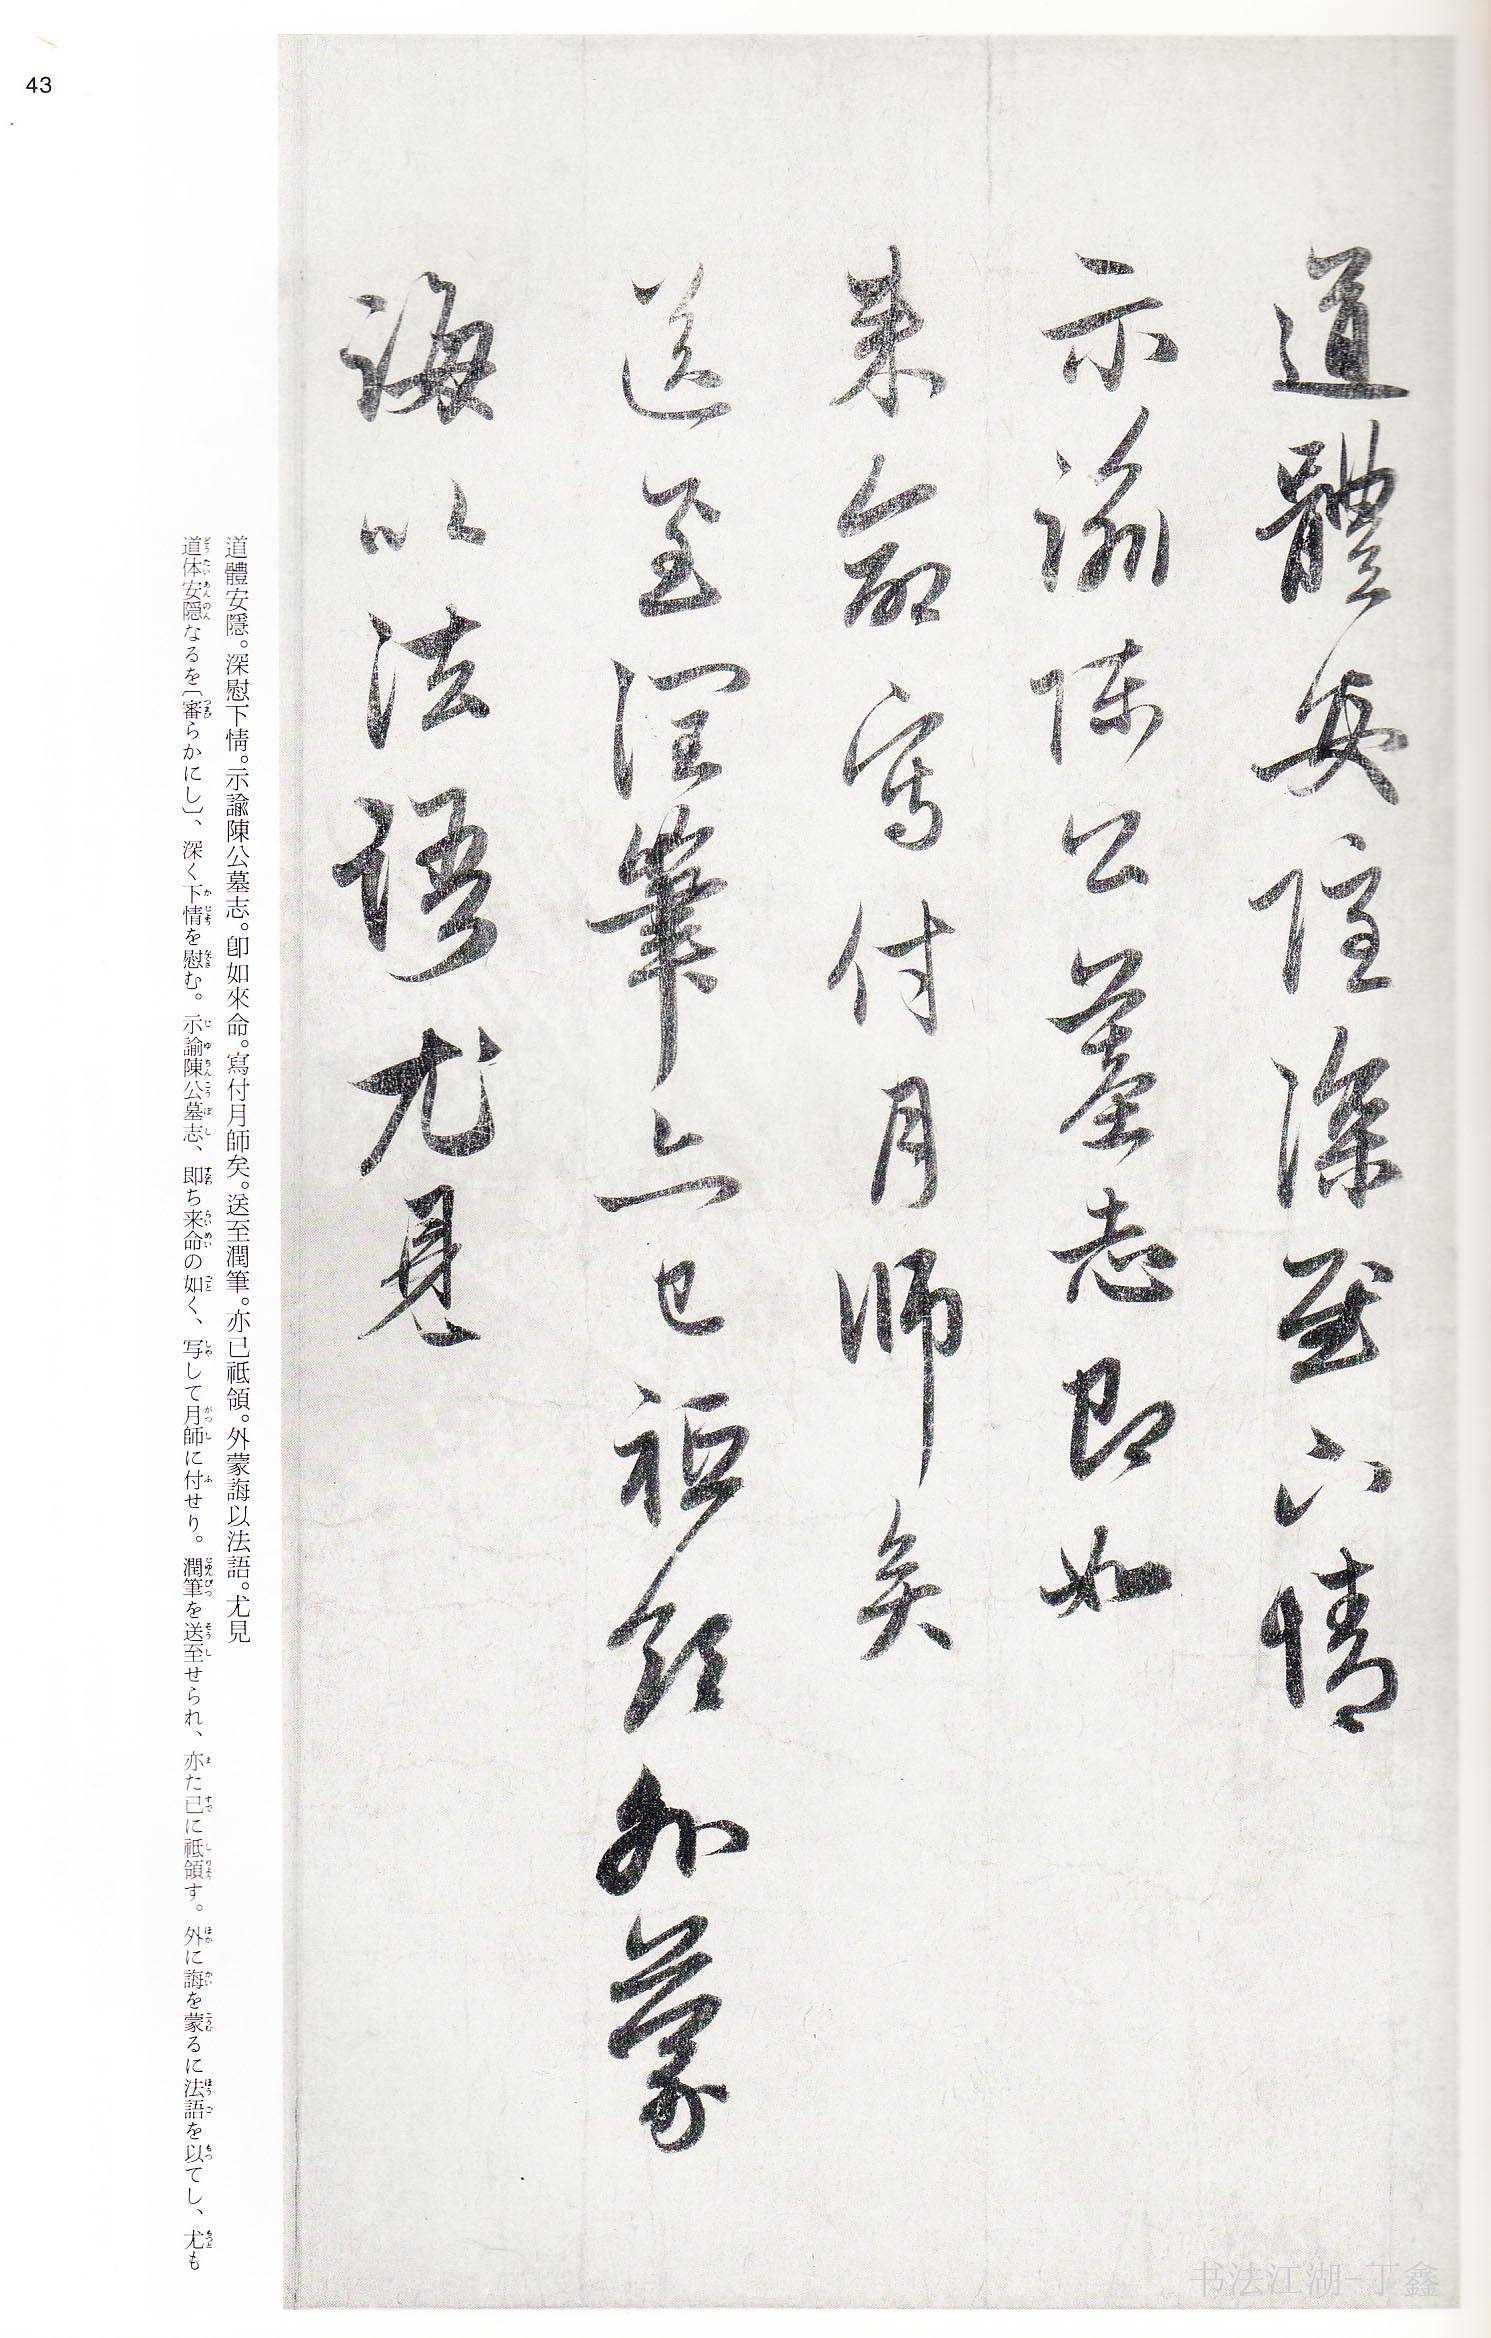 道體安隱深慰下情
示諭陳公墓志即如
来命寫付月師矣
送至潤筆亦已祗領外蒙
誨以法語尤見
道體安隱。深慰下情。示諭陳公墓志。卽如來命。寫付月師矣。送至潤筆。亦已祗領。外蒙誨以法語。尤見
道体安隠なるを〔審らかにし〕、深く下情を慰む。示諭陳公墓志、即ち来命の如く、写して月師に付せり。潤筆を送至せられ、亦た已に祗領す。外に誨を蒙るに法語を以てし、尤も
43
书法江湖-丁鑫